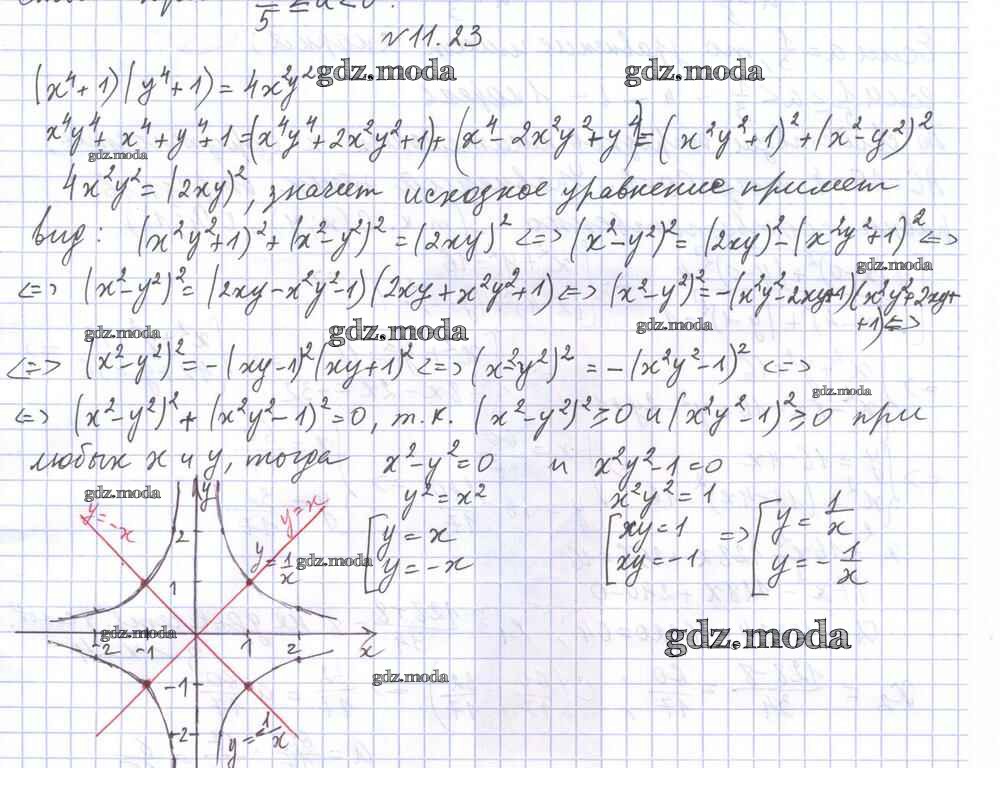 5
№11.23
(x⁴+1)(y⁴+1)=4x²y²
gdz.moda
gdz.moda
x⁴y⁴+x⁴+y⁴+1=(x⁴y⁴+2x²y²+1)+(x⁴-2x²y²+y⁴)=(x²y²+1)²+(x²-y²)²
gdz.moda
4x²y²=(2xy)², значит исходное уравнение примет
вид: (x²y²+1)²+(x²-y²)²=(2xy)² <=> (x²-y²)²=(2xy)²-(x²y²+1)² <=>
gdz.moda
<=> (x²-y²)²=(2xy-x²y²-1)(2xy+x²y²+1) <=> (x²-y²)²=-(x²y²-2xy+1)(x²y²+2xy+
+1) <=>
gdz.moda
gdz.moda
gdz.moda
<=> (x²-y²)²=-(xy-1)²(xy+1)² <=> (x²-y²)²=-(x²y²-1)² <=>
gdz.moda
<=> (x²-y²)²+(x²y²-1)²=0, т.к. (x²-y²)²≥0 и (x²y²-1)²≥0 при
любых x и y, тогда x²-y²=0 и x²y²-1=0
gdz.moda
y
y²=x²
x²y²=1
y=-x
y=x
[y=x
y=-x
[xy=1
xy=-1
=> [y=1/x
y=-1/x
2
y=1/x
gdz.moda
1
gdz.moda
-2 -1 1 2 x
gdz.moda
gdz.moda
-1
-2
y=-1/x